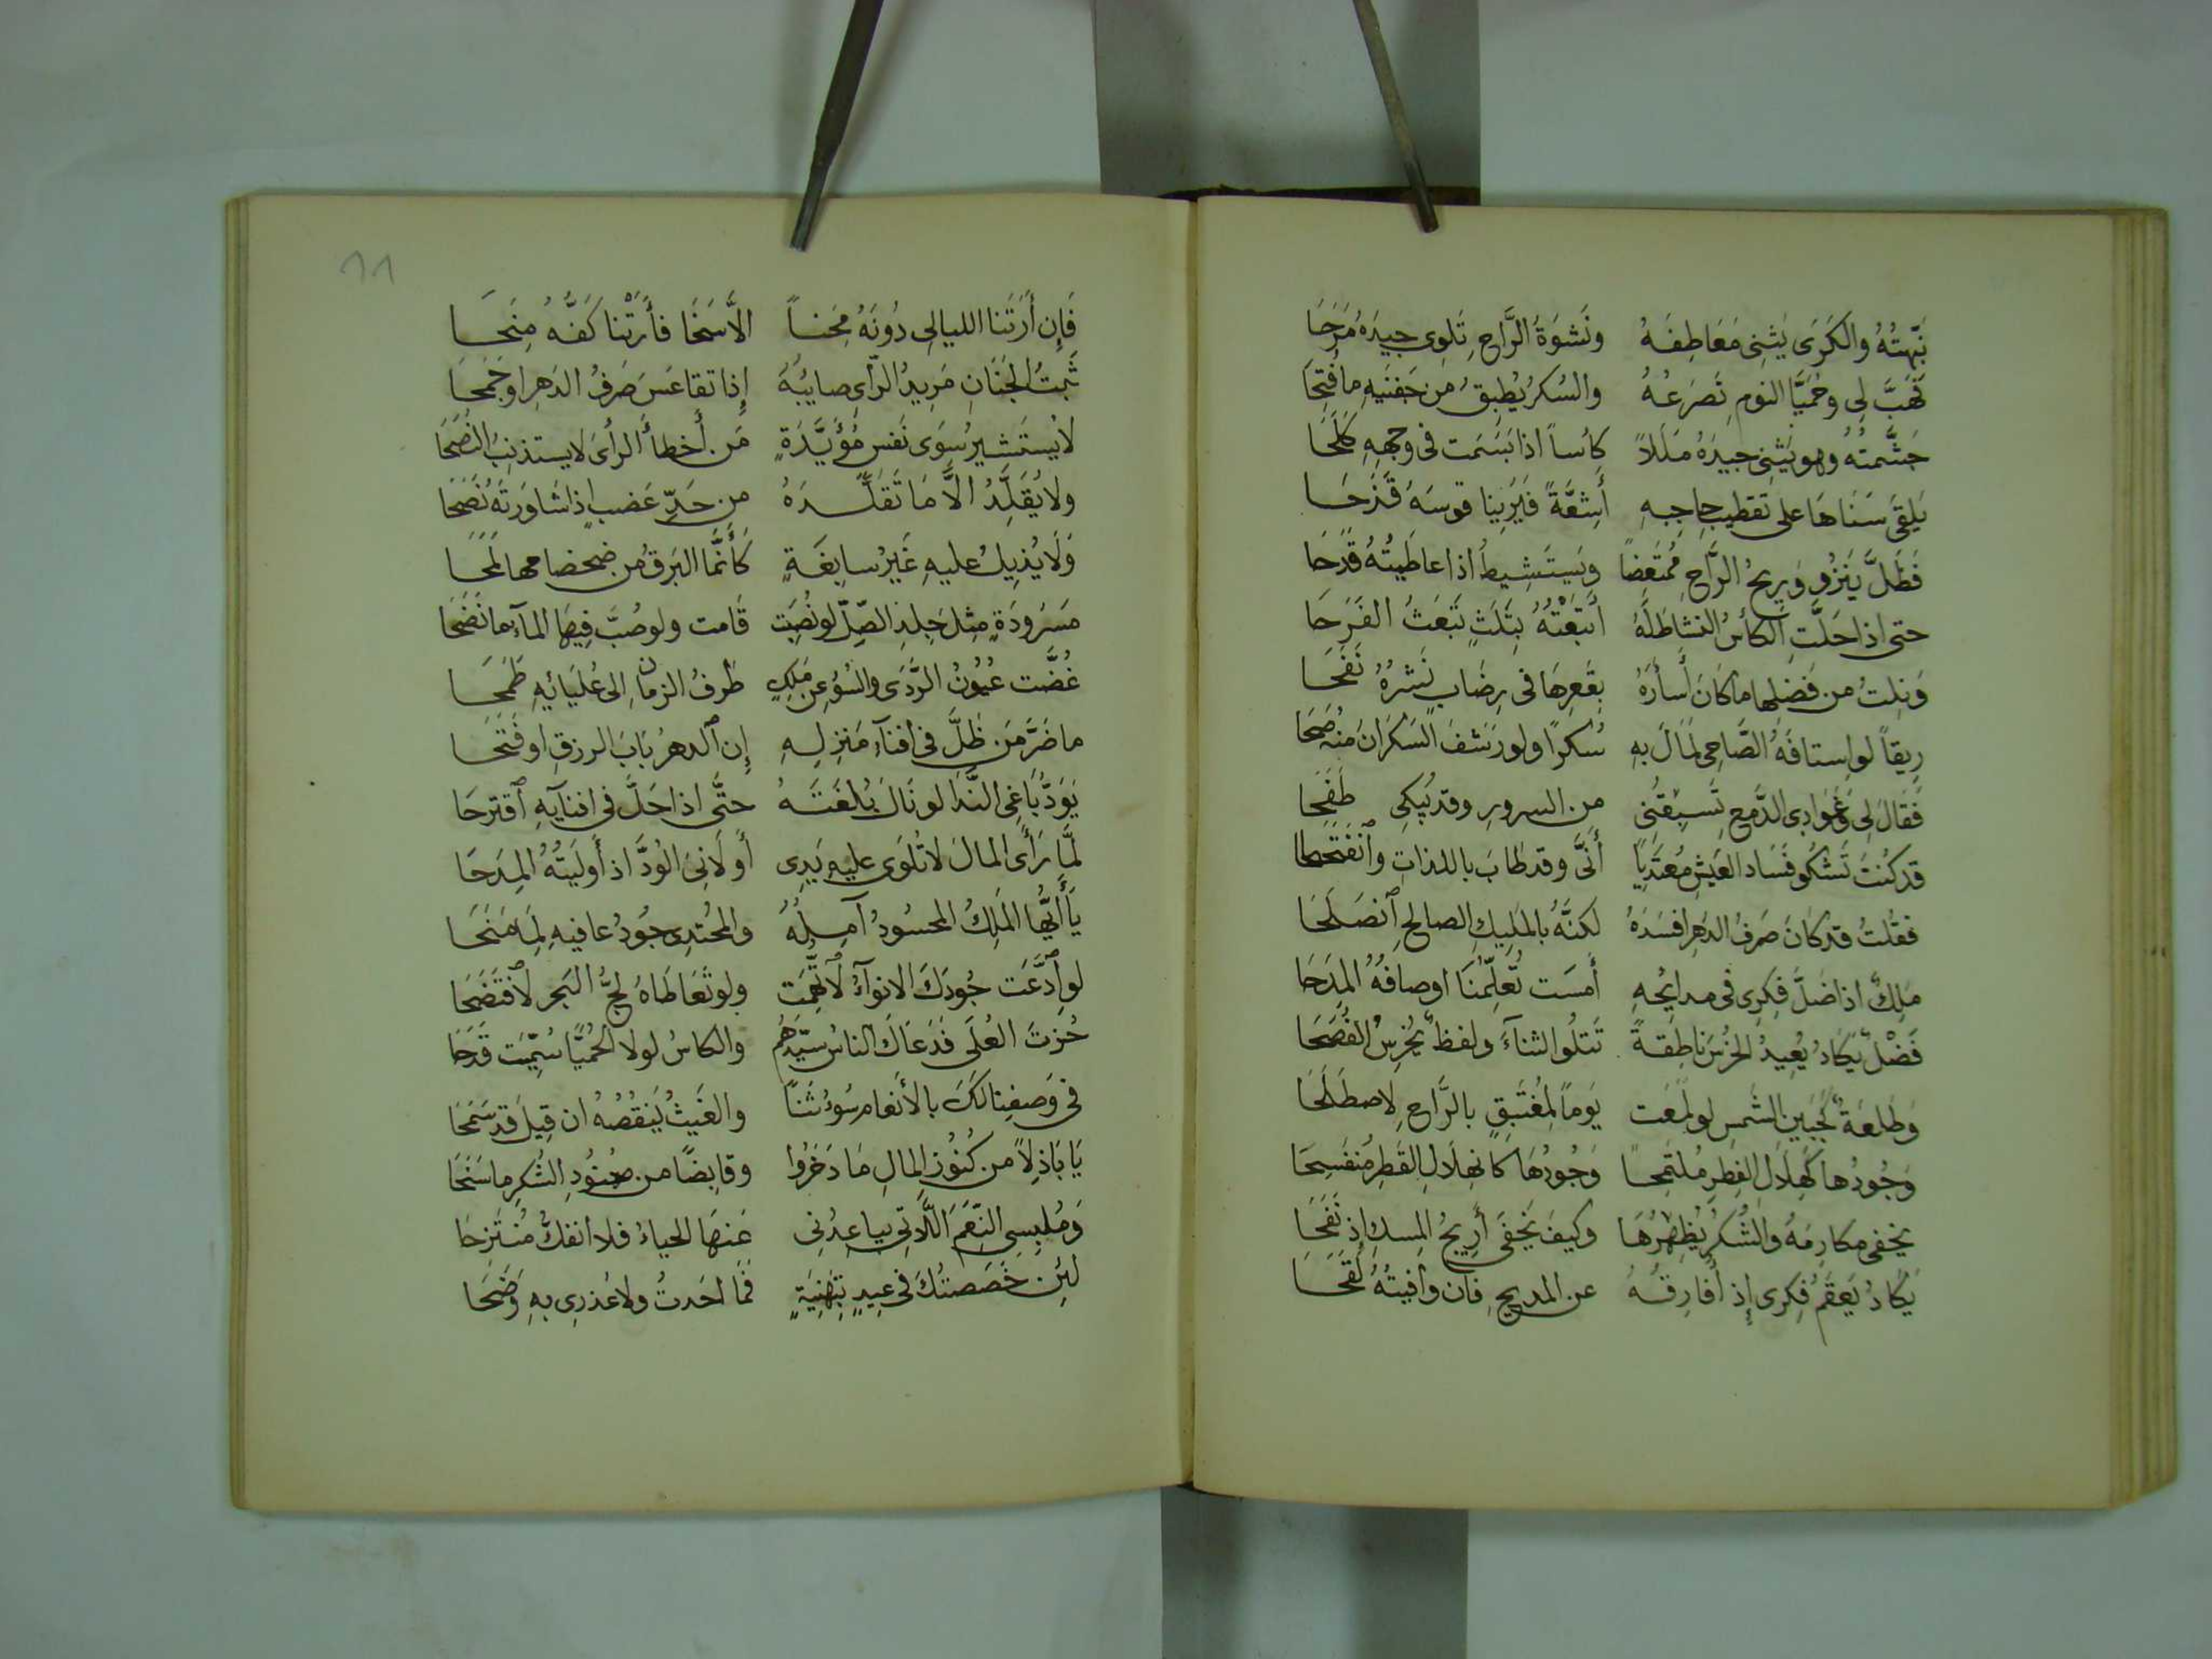 نَبَّهتُهُ والكَرَى يَثنِى مَعَاطِفَهُ ونَشوَةُ الرَّاحِ تَلوِى جِيدَهُ مَرَحَا
فَهَبَّ لِى وحُمَيَّا النومِ تَصرَعُهُ والسُكرُ يُطبِقُ مِن جَفنَيهِ ما فُتِحَا
جَشَّمتُهُ وهو يَثنِى جيدَهُ مَلَلاً كاُساً اذا بَسَمَت فى وجهِهِ كَلَحَا
يَلقَى سَنَاهَا على تقطيبِ حاجِبهِ أَشِعَّةً فَيُرِينا قوسَهُ قُزَحَا
فَظَلَّ يَنزُو وَرِيحُ الرَّاحِ مُمتَعِضاً ويَستَشِيطُ اذا عاطَيتُهُ قَدَحَا
حتى اذا حَلَّتِ الكأسُ النشاطَ لَهُ أتبَعْتُهُ بِثَلَثٍ تَبعَثُ الفَرَحَا
وَنِلتُ من فَضلِها ما كانَ أَسأَرَهُ بقَعرِهَا فى رِضَابٍ نَشرُهُ نَفَحَا
رِيقاً لو استافَهُ الصَّاحِى لَمَالَ بهِ سُكرًا ولو رَشَفَ السَكرَانُ مِنهُ صَحَا
فَقَالَ لِى وغَوَادِى الدَّمعِ تَسبِقُنِى من السرورِ وقد يُبكِى طَفَحَا
قد كُنتَ تَشكُو فَسَادَ العَيشِ مُعتَدِيًا أَنَّى وقد طابَ باللذاتِ وانفَتَحَا
فقُلتُ قد كانَ صَرفُ الدَهرِ افسَدَهُ لكنَّهُ بالمَلِيكِ الصالحِ ٱنصَلَحَا
مَلِكٌ اذا ضَلَّ فِكرِى فى مدايُحِهِ أَمسَت تُعَلِّمُنَا اوصافُهُ المِدَحَا
فَضْلٌ يَكَادُ يُعِيدُ الخُرسَ ناطِقةً تَتلُوا الثناءَ ولفظٌ يُخرِسُ الفُصَحَا
وَطَلعَةٌ كَجَبِينِ الشَمسِ لو لَمَعَت يَوماً لِمُغتَبِقٍ بالرَّاحِ لاصطَبَحَا
وَجُودُها كَهِلَالِ الفِطرِ مُلتَمِحاً وَجُودُهَا كانهِلَالِ القَطرِ مُنفَسِحَا
يخفى مكارِمَهُ والشُكرُ يُظهِرُهَا وكيفَ يَخفَى أَرِيجُ المِسكِ إذ نَفَحَا
يَكَادُ يَعقَمُ فِكرى إذ أُفارِقُهُ عن المديحِ فان وافيتُهُ لَقَحَا
١١
فَإِن أَرَتَنا الليالِى دُونَهُ مِحَناً الاَّ سَخَا فأَرَتْنا كَفُّهُ مِنَحَا
ثَبتُ الجَنَانِ مَرِيدُ الرَّأىِ صايبُهُ إِذا تقاعَسَ صَرفُ الدَهرِ او جَمَحَا
لا يَستَشيرُ سِوَى نَفسٍ مُؤَيَّدَةٍ مَن أَخطأَ الرأىَ لا يستذنِبُ النُصَحَا
ولا يُقَلِّدُ الاَّ مَا تَقَلَّدَهُ مِن حَدِّ عَضبٍ إِذا شاوَرتَهُ نَصَحَا
وَلَا يُذِيلُ عليهِ غَيرُ سابِغَةٍ كَأَنَّما البَرقُ من ضحضاحِها لَمَحَا
مَسرُودَةٍ مِثلَ جِلدِ الصِّلِّ لو نُصِبَت قَامت ولو صُبَّ فِيها المآءُ ما نَضَحَا
غُضَّت عُيُونُ الرَّدَى والسُوُ عن مَلِكٍ طَرفُ الزمانِ الى عُليَائهِ طَمَحَا
ما ضَرَّ مَن ظَلَّ فى افنآءِ مَنزِلِهِ إِن ٱلدهرُ بَابَ الرزقِ او فَتَحَا
يَوَدُّ بَاغِى النَّدَا لو نَالَ بُلغَتَهُ حتَّى اذا حَلَّ فى افنآيهِ ٱقترحَا
لَمَّا رَأَى المالَ لا تُلوَى عليهِ يَدِى أَولَانِىَ الوُدَّ اذ أَولَيتُهُ المِدَحَا
يَأَيُّها المَلِكُ المحسُودُ آمِلُهُ والمُجتدِى جُودُ عافيهِ لِمَا مَنَحَا
لو ٱدَّعَت جُودَكَ الانوآءُ لاٱتُّهِمَت ولو تَعَاطَاهُ لجُّ البَحرِ لاٱفتَضَحَا
حُزتَ العُلَى فَدَعَاكَ الناسُ سَيِّدَهُم والكاسُ لولا الحُمَيَّا سُمِّيَت قَدَحَا
فى وَصفِنا لَكَ بالأَنعامِ سُوءُ ثَنًا والغَيثُ يَنقُصُهُ ان قِيلَ قد سَمَحَا
يَا بَاذِلاً من كُنُوزِ المالِ مَا دَخَرُوا وقابِضًا من صُنُودِ الشُكرِ ما سَنَحَا
وَمُلبِسِى النِّعَمَ اللَّاتِى يباعِدُنِى عَنهَا الحياءُ فلا انفكُّ مُنتَزِحَا
لئِن خَصَصتُكَ فى عِيدٍ بِتَهنِيَةٍ فَمَا أحَدتُ ولا عُذرِى بهِ وَضَحَا